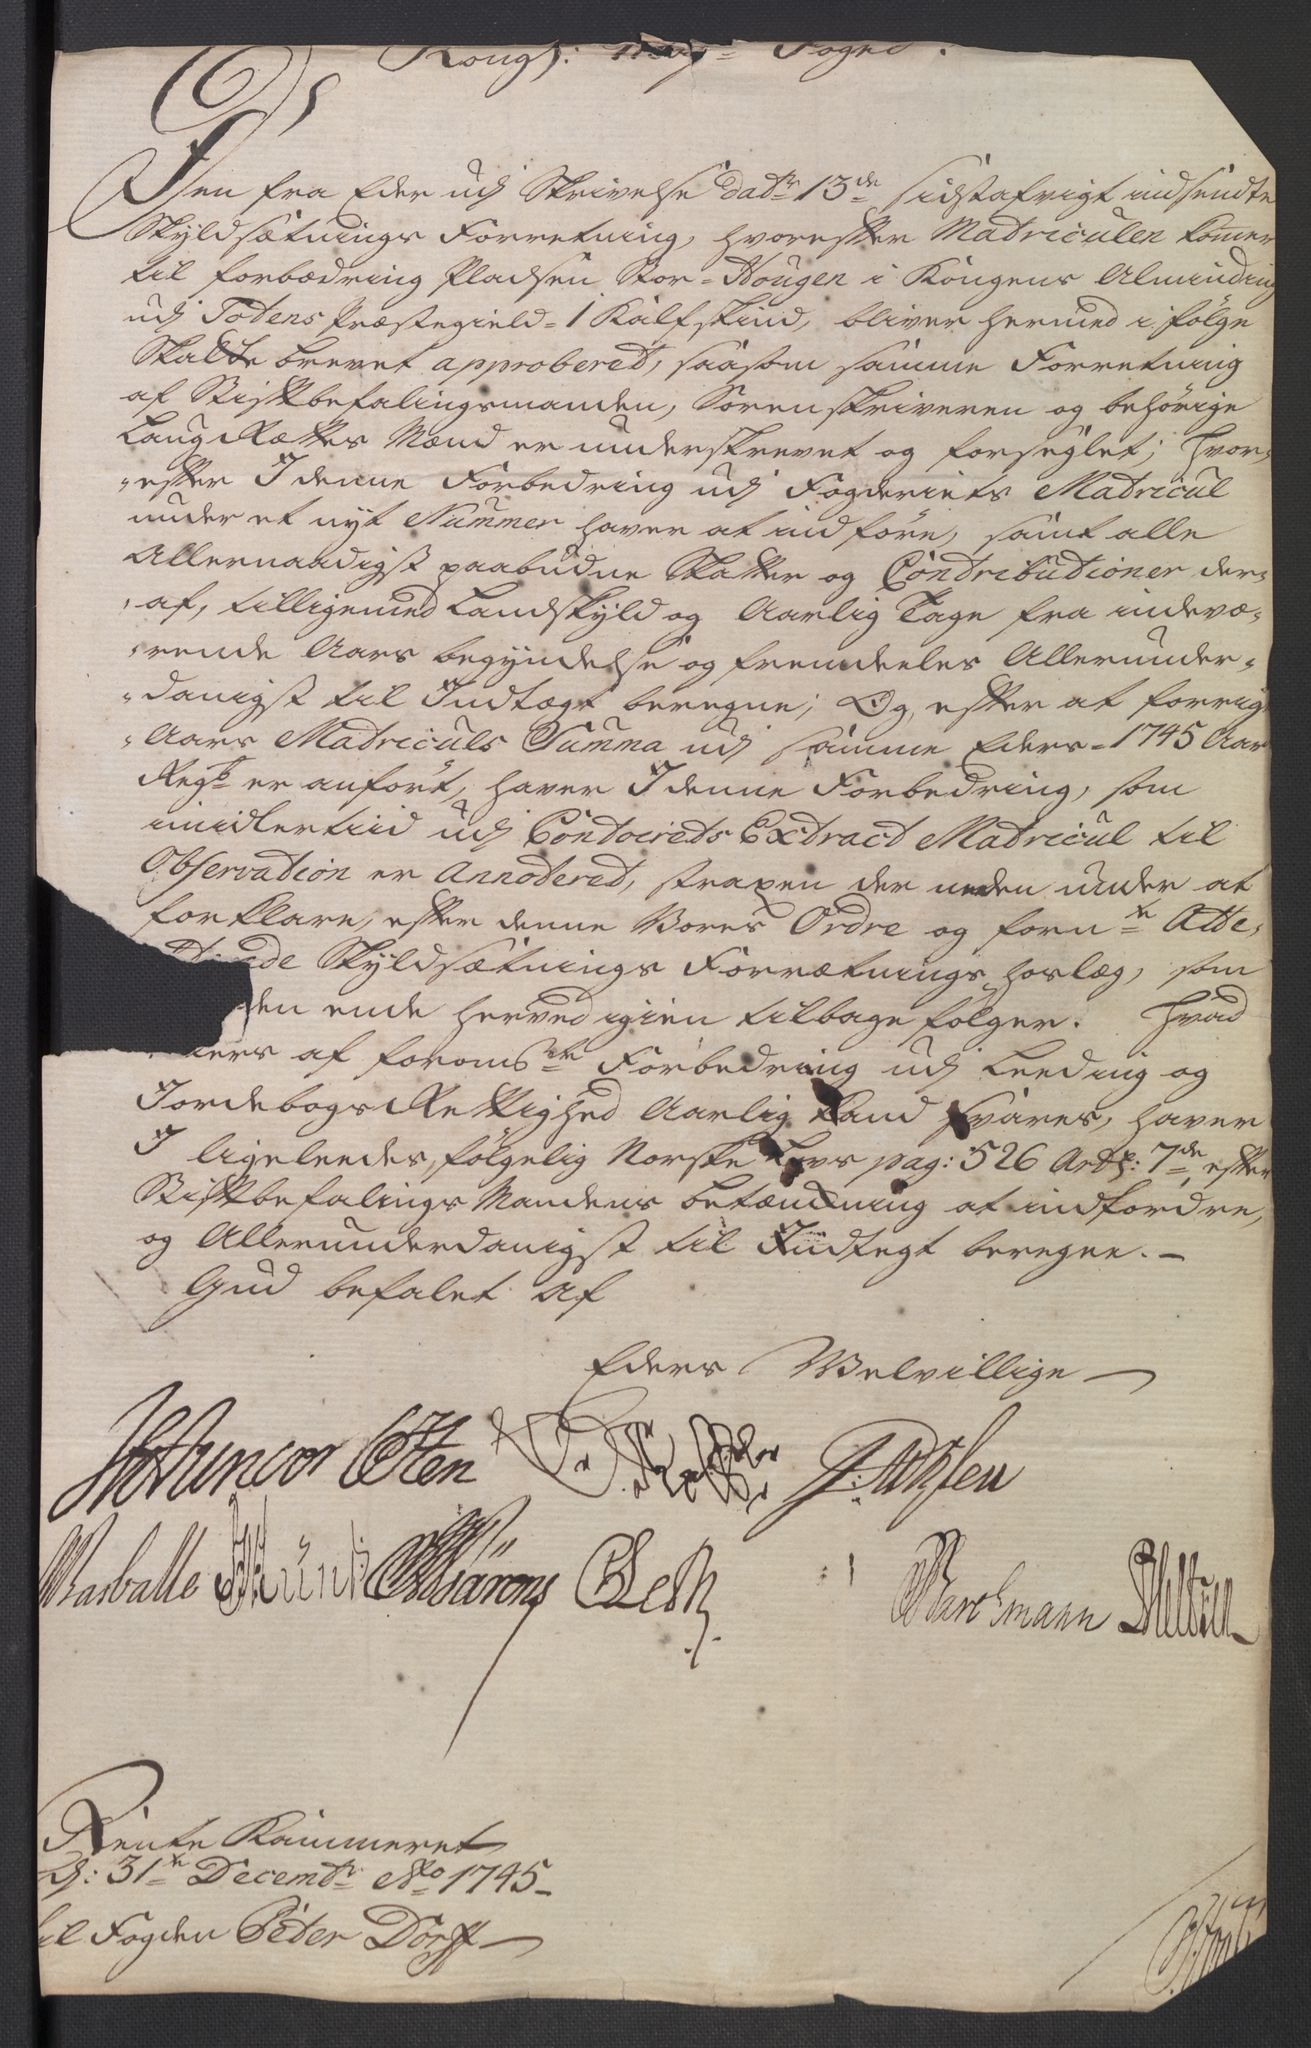 Kongl: May: Foged.
Den fra Eder udj Skrivelse dat: 13de sidstafvigt indsendte
Skyldsætnings Forretning, hvorefter Matriculen kommer
til forbædring Pladsen Stor-Hougen i Kongens Alminding
udj Totens Præstegield = 1 Kalfskind, bliver hermed i følge
Skatte brevet approberet, saasom samme Forretning
af Stiftbefalingsmanden, Sorenskriveren og behörige
Laug Rættes Mænd er underskrevet og forseglet; hvor-
-efter I denne Forbedring udj Fogderiets Matricul
under et nyt Nummer haver at indføre, samt alle
Allernaadigst paabudne Skatter og Contributioner der-
-af, tilligemed Landskyld og Aarlig Tage fra indevæ-
-rende Aars begyndelse og fremdeeles Allerunder-
-danigst til Indtægt beregne; Og, efter at forrig
Aars Matriculs Summa udj samme Eders 1745 Aar
Regsk er anført, haver I denne Forbedring, som
imidlertiid udj Contoirets Extract Matricul til
Observation er Annoteret, straxen der neden under at
forklare, efter denne Vores Ordre og forn:te Atte-
Skyldsætnings Forrætnings hoslæg, som
den ende herved igien tilbage følger. Hvad
ellers af foroms:te Forbedring udj Leeding og
Jordebogs Rettighed Aarlig kand svares, haver
I ligeleedes, følgelig Norske Lovs pag: 526 Art: 7de, efter
Stiftbefalings Mandens betænkning at indfordre,
og Allerunderdanigst til Indtegt beregne.—
Gud befalet af
Eders Velvillige
Otten
Barchmann
Rente Kammeret
d: 31te Decembr Ao 1745
til Fogden Peter Dorff